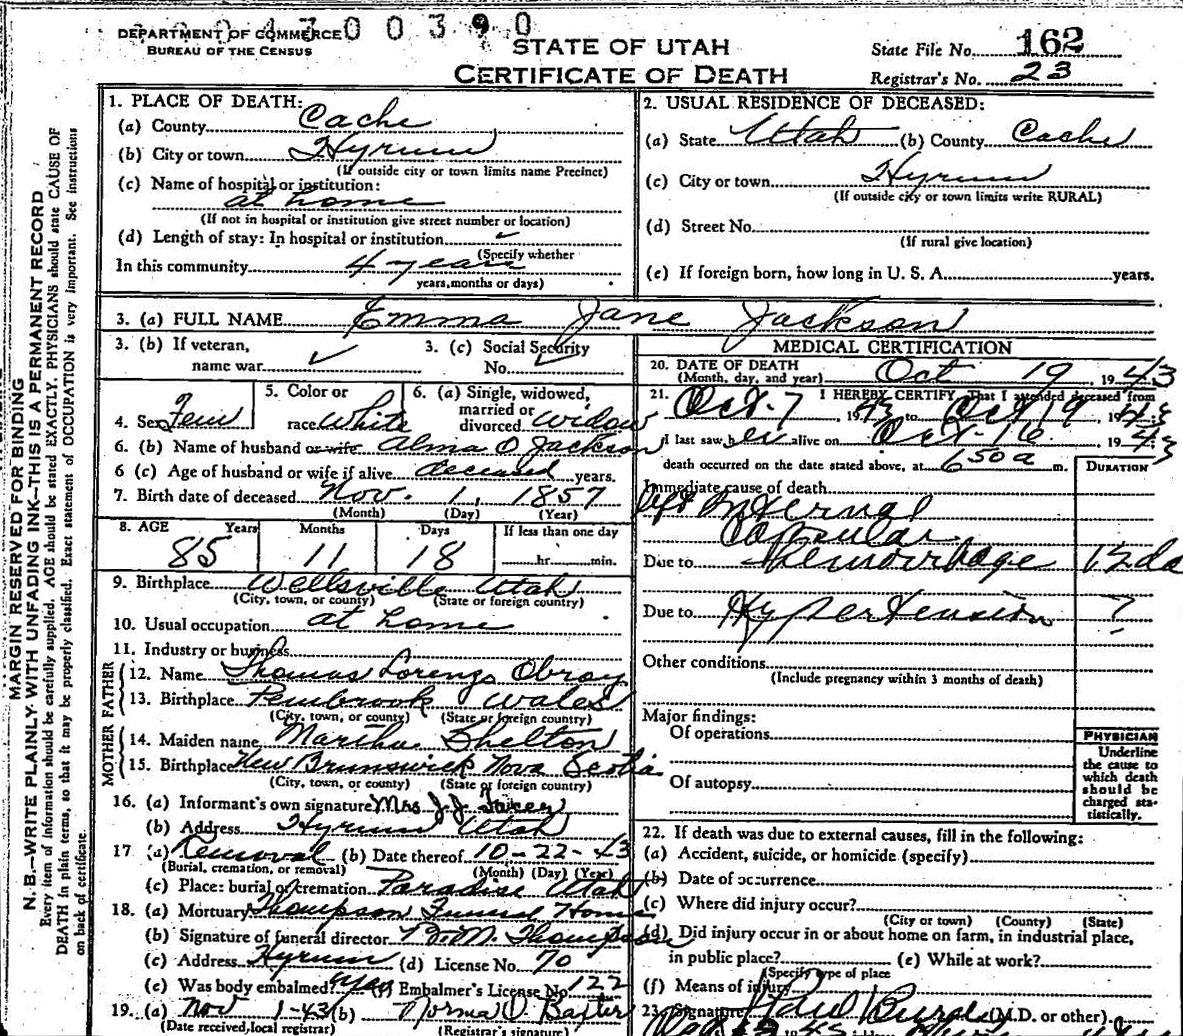 DEPARTMENT OF COMMERCE
BUREAU OF THE CENSUS
0 0 3 9 0
STATE OF UTAH
CERTIFICATE OF DEATH
State File No. 162
Registrar's No. 23
MARGIN RESERVED FOR BINDING
N. B.—WRITE PLAINLY WITH UNFADING INK—THIS IS A PERMANENT RECORD
Every item of information should be carefully supplied. AGE should be stated EXACTLY. PHYSICIANS should state CAUSE OF
DEATH in plain terms, so that it may be properly classified. Exact statement of OCCUPATION is very important. See instructions
on back of certificate.
1. PLACE OF DEATH:
(a) County Cache
(b) City or town Hyrum
(If outside city or town limits name Precinct)
(c) Name of hospital or institution:
at home
(If not in hospital or institution give street number or location)
(d) Length of stay: In hospital or institution
(Specify whether
In this community 4 years
years, months or days)
2. USUAL RESIDENCE OF DECEASED:
(a) State Utah (b) County Cache
(c) City or town Hyrum
(If outside city or town limits write RURAL)
(d) Street No.
(If rural give location)
(e) If foreign born, how long in U. S. A. years.
3. (a) FULL NAME Emma Jane Jackson
3. (b) If veteran, name war ✓
3. (c) Social Security No. ✓
4. Sex Fem
5. Color or race White
6. (a) Single, widowed, married or divorced Widow
6. (b) Name of husband or wife Alma O Jackson
6 (c) Age of husband or wife if alive deceased years.
7. Birth date of deceased Nov. 1, 1857
(Month) (Day) (Year)
8. AGE Years Months Days If less than one day
85 11 18 hr. min.
9. Birthplace Wellsville Utah
(City, town, or county) (State or foreign country)
10. Usual occupation at home
11. Industry or business
FATHER
12. Name Thomas Lorenzo Obray
13. Birthplace Pembrook Wales
(City, town, or county) (State or foreign country)
MOTHER
14. Maiden name Martha Shelton
15. Birthplace New Brunswick Nova Scotia
(City, town, or county) (State or foreign country)
16. (a) Informant's own signature Mrs J. J.
(b) Address Hyrum Utah
17 (a) Removal (b) Date thereof 10-22-43
(Burial, cremation, or removal) (Month) (Day) (Year)
(c) Place: burial or cremation Paradise Utah
18. (a) Mortuary Thompson Funeral Home
(b) Signature of funeral director B. M. Thompson
(c) Address Hyrum (d) License No. 70
(e) Was body embalmed yes (f) Embalmer's License No. 122
19. (a) Nov 1-43 (b) Norma O. Baxter
(Date received, local registrar) (Registrar's signature)
MEDICAL CERTIFICATION
20. DATE OF DEATH
(Month, day, and year) Oct 19 1943
21. I HEREBY CERTIFY, That I attended deceased from
Oct. 7 1943 to Oct 19 1943
I last saw her alive on Oct. 16 1943
death occurred on the date stated above, at 650 a m.
DURATION
Immediate cause of death
left Internal
Capsular
Due to hemorrhage 12 da
Due to Hypertension ?
Other conditions
(Include pregnancy within 3 months of death)
Major findings:
Of operations
Of autopsy
PHYSICIAN
Underline
the cause to
which death
should be
charged sta-
tistically.
22. If death was due to external causes, fill in the following:
(a) Accident, suicide, or homicide (specify)
(b) Date of occurrence
(c) Where did injury occur?
(City or town) (County) (State)
(d) Did injury occur in or about home on farm, in industrial place,
in public place? (e) While at work?
(Specify type of place
(f) Means of injury
23. Signature Paul (M.D. or other)